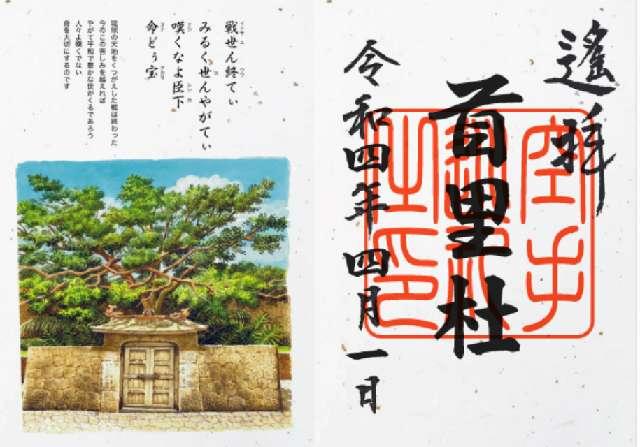 遙拝
首里杜
令和四年四月一日
空手
之印
戰世ん終てぃ
みるく世んやがてぃ
嘆くなよ臣下
命どぅ宝
琉球の天地をくつがえした戦は終わった
今のこの苦しみを越えれば
やがて平和で豊かな世がくるであろう
人々よ嘆くでない
命を大切にするのです